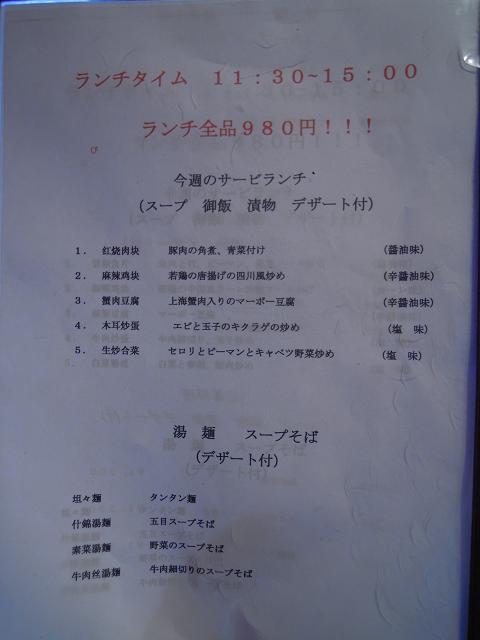 ランチタイム　１１：３０~１５：００
ランチ全品９８０円！！！
び
今週のサービランチ
（スープ　御飯　漬物　デザート付）
１．　红烧肉块　豚肉の角煮、青菜付け　（醤油味）
２．　麻辣鸡块　若鶏の唐揚げの四川風炒め　（辛醤油味）
３．　蟹肉豆腐　上海蟹肉入りのマーボー豆腐　（辛醤油味）
４．　木耳炒蛋　エビと玉子のキクラゲの炒め　（塩　味）
５．　生炒合菜　セロリとピーマンとキャベツ野菜炒め　（塩　味）
湯　麺　　スープそば
（デザート付）
坦々麺　タンタン麺
什錦湯麺　五目スープそば
素菜湯麺　野菜のスープそば
牛肉丝湯麺　牛肉細切りのスープそば